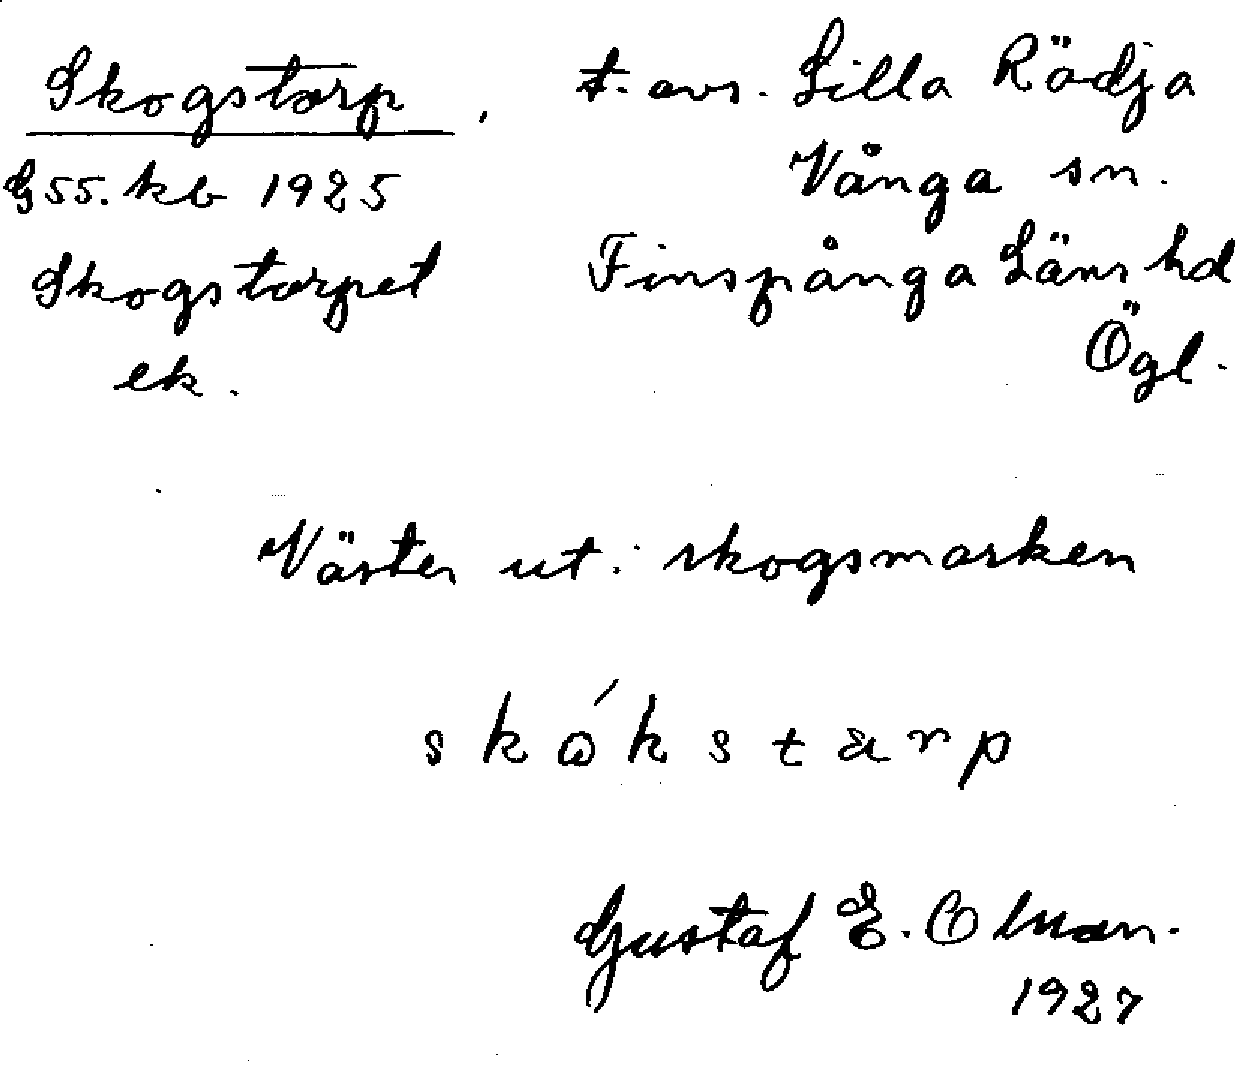 Skogstorp, t. avs. Lilla Rödja
G 55. kb 1925 Vånga sn.
Skogstorpet Finspånga Läns hd
ek. Ögl.
Väster ut i skogsmarken
skókstarp
Gustaf E. Olman.
1927